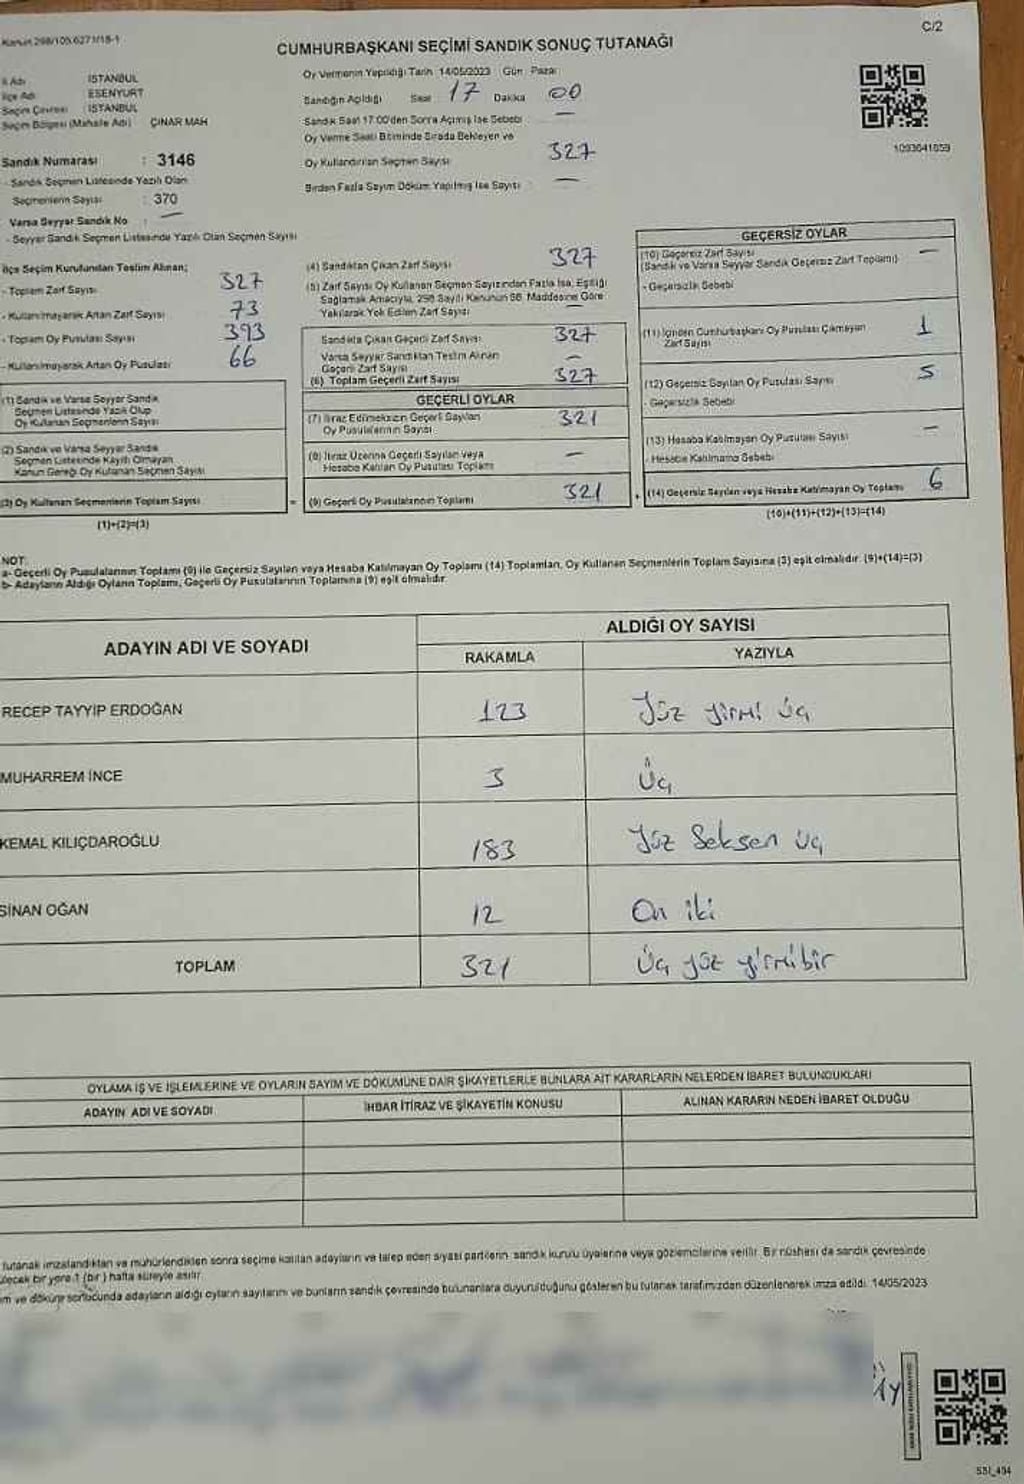 Kanun 298/105,6271/18-1
C/2
CUMHURBAŞKANI SEÇİMİ SANDIK SONUÇ TUTANAĞI
İl Adı İSTANBUL
İlçe Adı ESENYURT
Seçim Çevresi İSTANBUL
Seçim Bölgesi (Mahalle Adı) ÇINAR MAH
Sandık Numarası : 3146
- Sandık Seçmen Listesinde Yazılı Olan
Seçmenlerin Sayısı : 370
Varsa Seyyar Sandık No : —
- Seyyar Sandık Seçmen Listesinde Yazılı Olan Seçmen Sayısı
Oy Vermenin Yapıldığı Tarih 14/05/2023 Gün Pazar
Sandığın Açıldığı Saat 17 Dakika 00
Sandık Saat 17:00'den Sonra Açılmış İse Sebebi —
Oy Verme Saati Bitiminde Sırada Bekleyen ve
Oy Kullandırılan Seçmen Sayısı 327
Birden Fazla Sayım Döküm Yapılmış İse Sayısı —
1093641859
İlçe Seçim Kurulundan Teslim Alınan;
- Toplam Zarf Sayısı 327
- Kullanılmayarak Artan Zarf Sayısı 73
- Toplam Oy Pusulası Sayısı 393
- Kullanılmayarak Artan Oy Pusulası 66
(1) Sandık ve Varsa Seyyar Sandık
Seçmen Listesinde Yazılı Olup
Oy Kullanan Seçmenlerin Sayısı
(2) Sandık ve Varsa Seyyar Sandık
Seçmen Listesinde Kayıtlı Olmayan
Kanun Gereği Oy Kullanan Seçmen Sayısı
(3) Oy Kullanan Seçmenlerin Toplam Sayısı =
(1)+(2)=(3)
(4) Sandıktan Çıkan Zarf Sayısı 327
(5) Zarf Sayısı Oy Kullanan Seçmen Sayısından Fazla İse, Eşitliği
Sağlamak Amacıyla, 298 Sayılı Kanunun 98. Maddesine Göre
Yakılarak Yok Edilen Zarf Sayısı —
Sandıkta Çıkan Geçerli Zarf Sayısı 327
Varsa Seyyar Sandıktan Teslim Alınan
Geçerli Zarf Sayısı —
(6) Toplam Geçerli Zarf Sayısı 327
GEÇERLİ OYLAR
(7) İtiraz Edilmeksizin Geçerli Sayılan
Oy Pusulalarının Sayısı 321
(8) İtiraz Üzerine Geçerli Sayılan veya
Hesaba Katılan Oy Pusulası Toplamı —
(9) Geçerli Oy Pusulalarının Toplamı 321 +
GEÇERSİZ OYLAR
(10) Geçersiz Zarf Sayısı —
(Sandık ve Varsa Seyyar Sandık Geçersiz Zarf Toplamı)
- Geçersizlik Sebebi
(11) İçinden Cumhurbaşkanı Oy Pusulası Çıkmayan
Zarf Sayısı 1
(12) Geçersiz Sayılan Oy Pusulası Sayısı 5
- Geçersizlik Sebebi
(13) Hesaba Katılmayan Oy Pusulası Sayısı —
- Hesaba Katılmama Sebebi
(14) Geçersiz Sayılan veya Hesaba Katılmayan Oy Toplamı 6
(10)+(11)+(12)+(13)=(14)
NOT:
a- Geçerli Oy Pusulalarının Toplamı (9) ile Geçersiz Sayılan veya Hesaba Katılmayan Oy Toplamı (14) Toplamları, Oy Kullanan Seçmenlerin Toplam Sayısına (3) eşit olmalıdır. (9)+(14)=(3)
b- Adayların Aldığı Oyların Toplamı, Geçerli Oy Pusulalarının Toplamına (9) eşit olmalıdır.
ADAYIN ADI VE SOYADI
ALDIĞI OY SAYISI
RAKAMLA YAZIYLA
RECEP TAYYİP ERDOĞAN 123 Yüz yirmi üç
MUHARREM İNCE 3 Üç
KEMAL KILIÇDAROĞLU 183 Yüz Seksen üç
SİNAN OĞAN 12 On iki
TOPLAM 321 Üç yüz yirmibir
OYLAMA İŞ VE İŞLEMLERİNE VE OYLARIN SAYIM VE DÖKÜMÜNE DAİR ŞİKAYETLERLE BUNLARA AİT KARARLARIN NELERDEN İBARET BULUNDUKLARI
ADAYIN ADI VE SOYADI İHBAR İTİRAZ VE ŞİKAYETİN KONUSU ALINAN KARARIN NEDEN İBARET OLDUĞU
tutanak imzalandıktan ve mühürlendikten sonra seçime katılan adayların ve talep eden siyasi partilerin, sandık kurulu üyelerine veya gözlemcilerine verilir. Bir nüshası da sandık çevresinde
bir yere 1 (bir) hafta süreyle asılır.
ve döküm sonucunda adayların aldığı oyların sayılarını ve bunların sandık çevresinde bulunanlara duyurulduğunu gösteren bu tutanak tarafımızdan düzenlenerek imza edildi. 14/05/2023